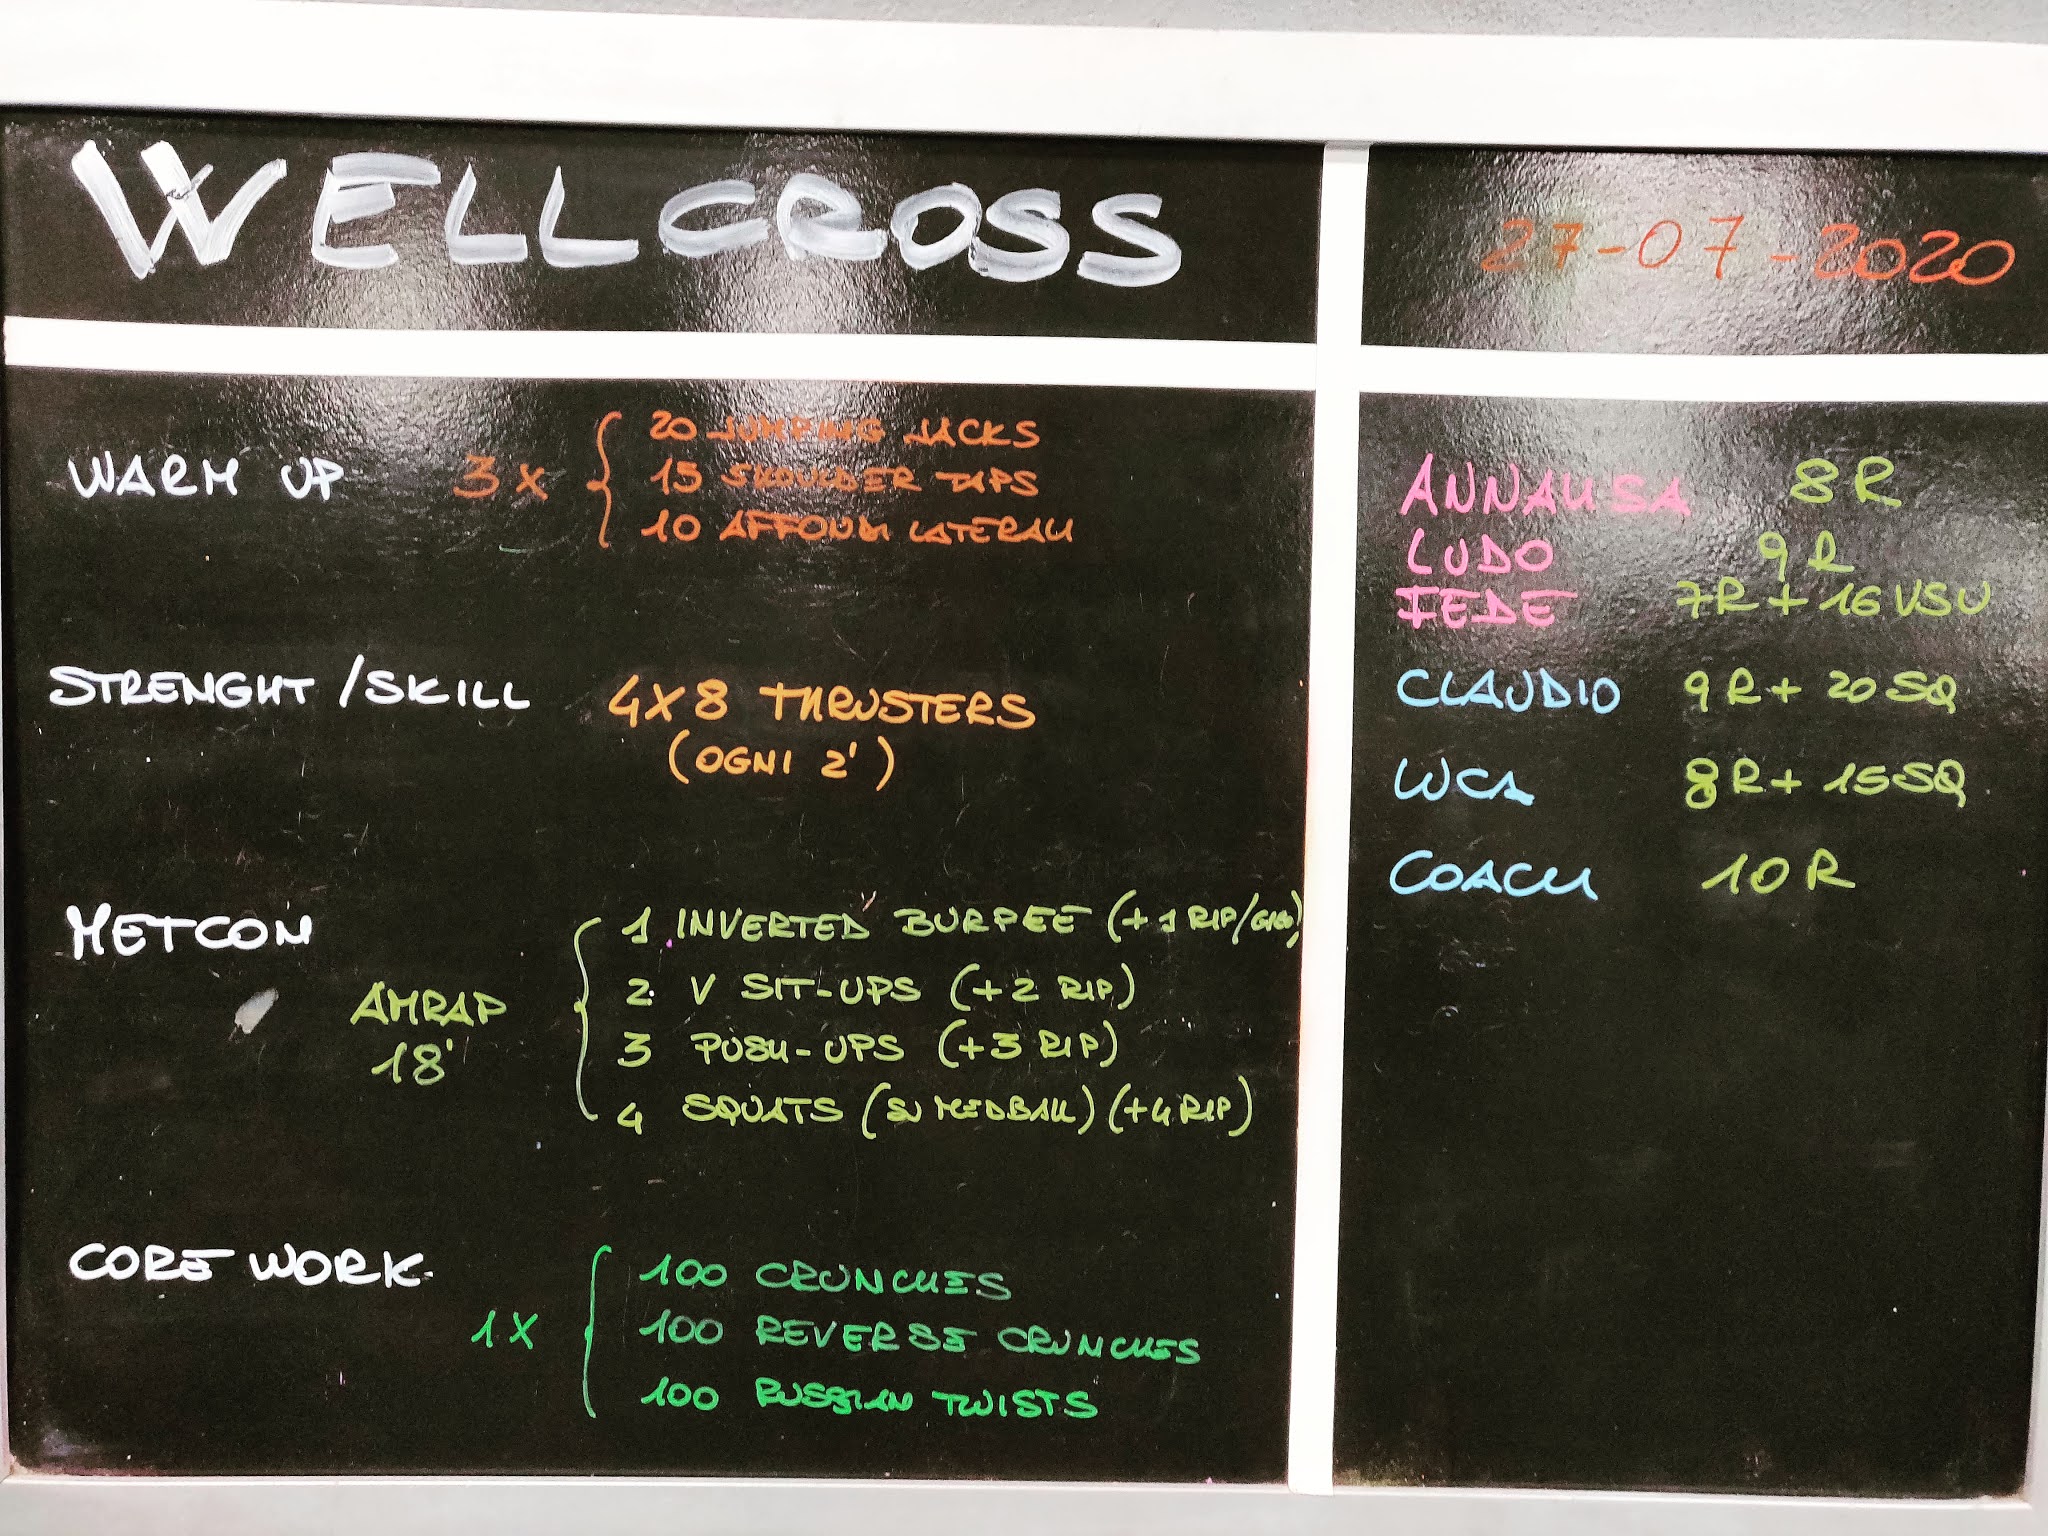 WELLCROSS
27-07-2020
WARM UP 3X
20 JUMPING JACKS
15 SHOULDER TAPS
10 AFFONDI LATERALI
STRENGHT /SKILL 4X8 THRUSTERS
(OGNI 2')
METCON
AMRAP
18'
1 INVERTED BURPEE (+1 RIP/GIRO)
2 V SIT-UPS (+2 RIP)
3 PUSH-UPS (+3 RIP)
4 SQUATS (SU MEDBALL) (+4 RIP)
CORE WORK
1X
100 CRUNCHES
100 REVERSE CRUNCHES
100 RUSSIAN TWISTS
ANNALISA 8R
LUDO 9R
FEDE 7R + 16 VSU
CLAUDIO 9R + 20 SQ
LUCA 8R + 15 SQ
COACH 10R